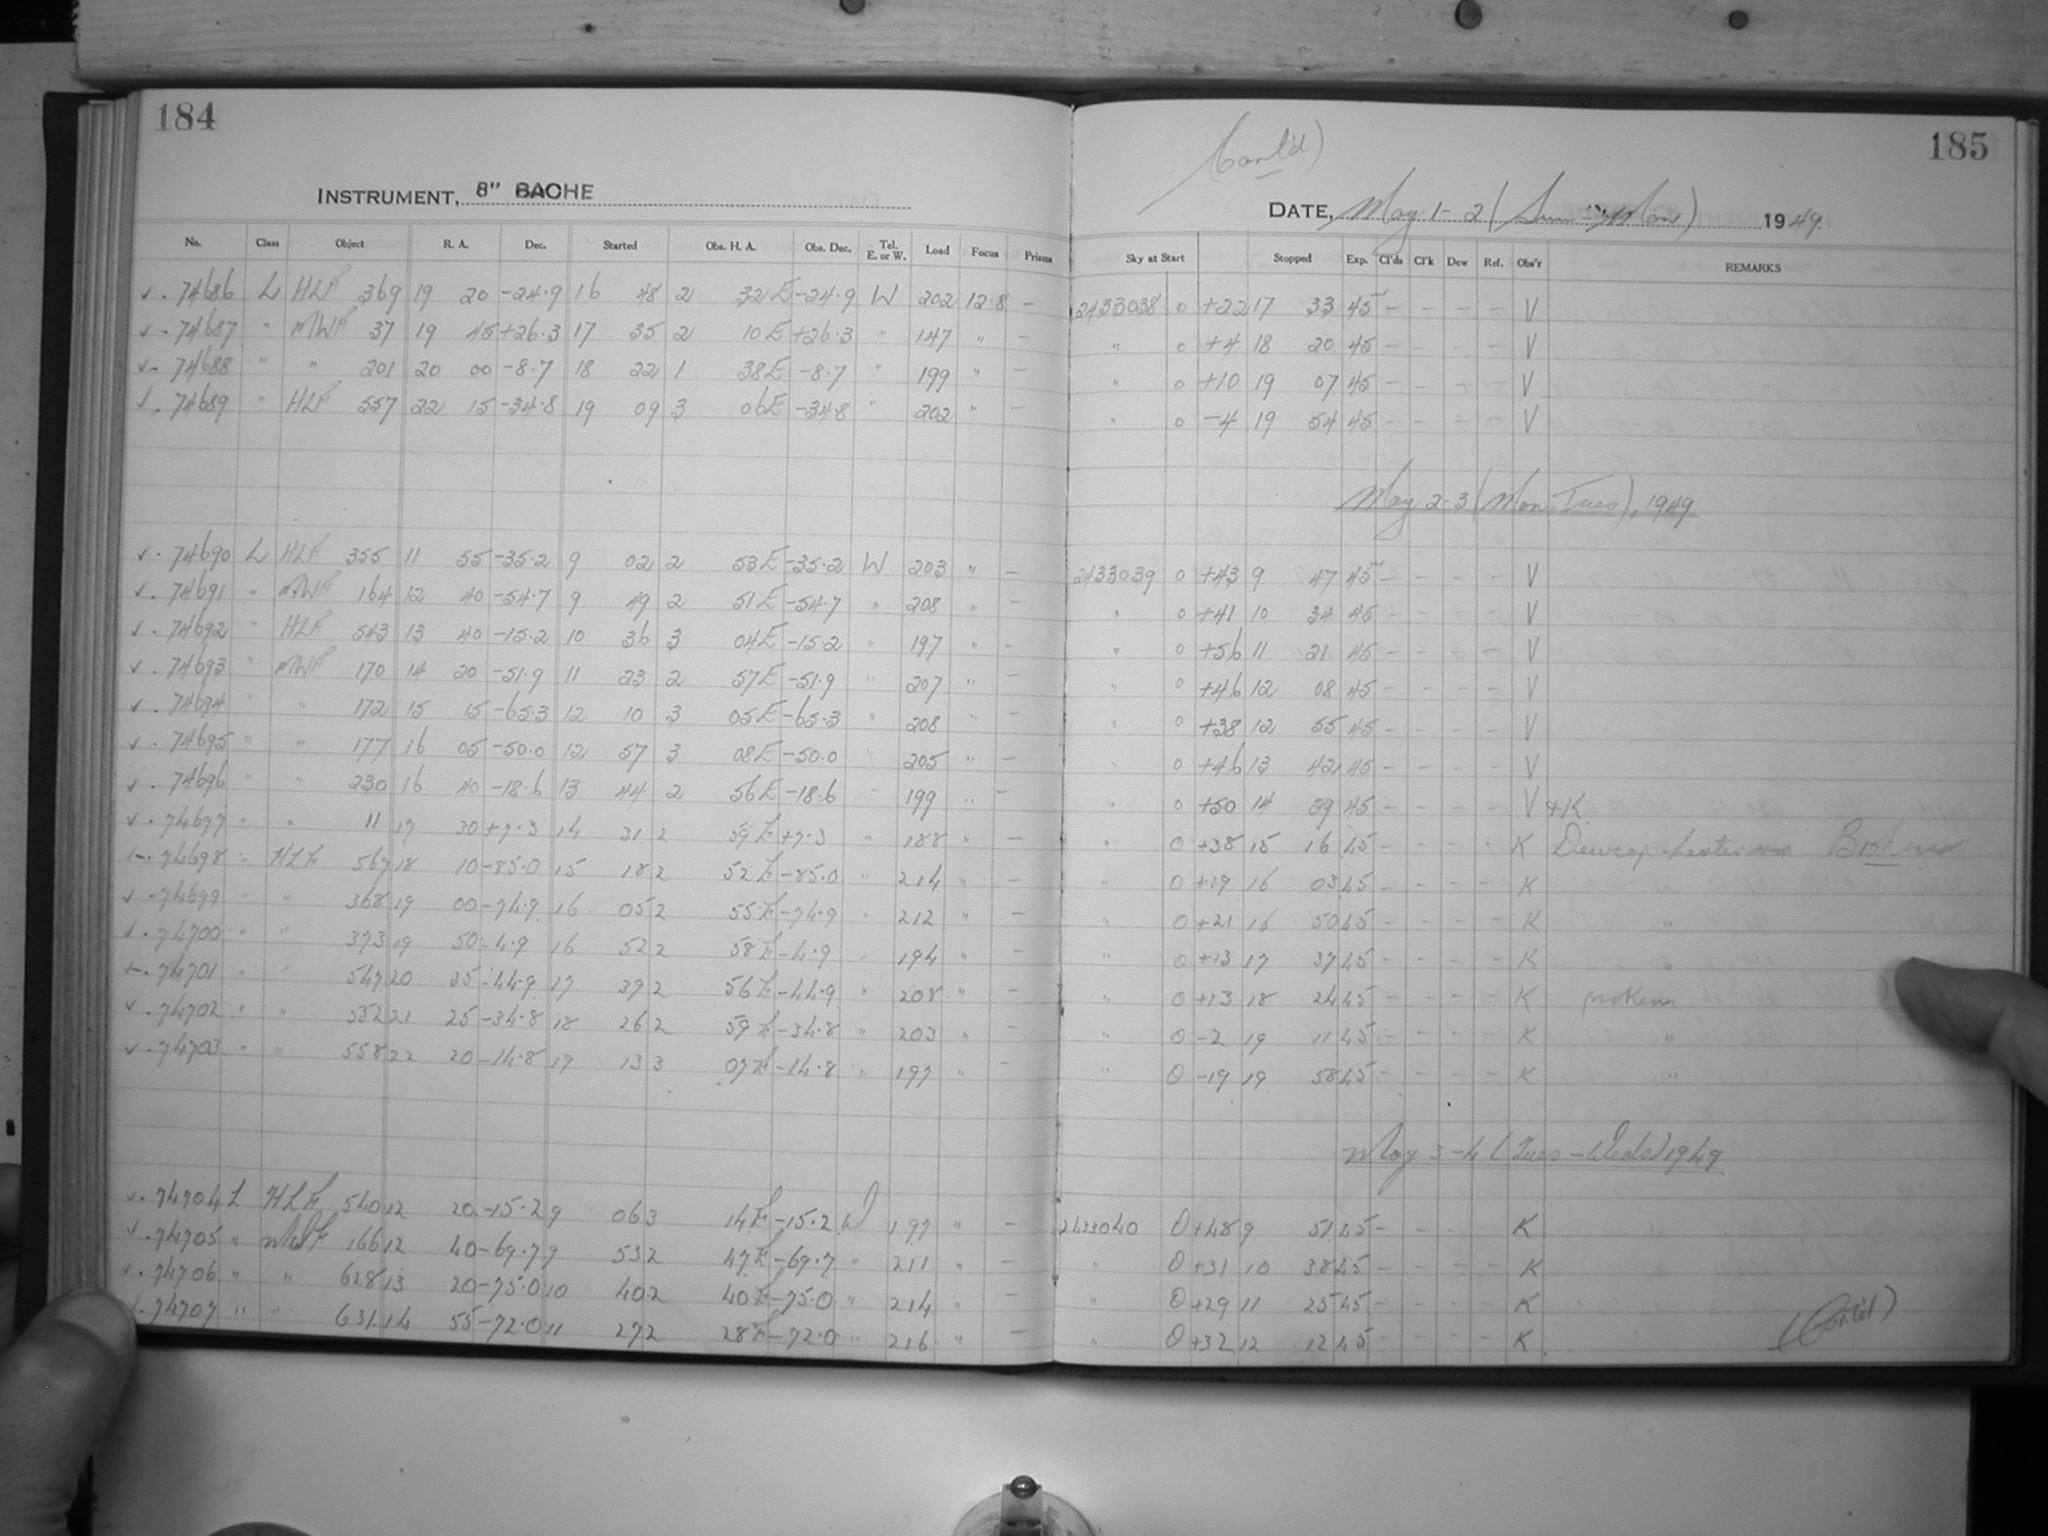 184
INSTRUMENT, 8" BACHE
No. Class Object R. A. Dec. Started Obs. H. A. Obs. Dec. Tel. E. or W. Load Focus Prisms
v. 74686 L HLF 369 19 20 -24.9 16 48 2 32 E -24.9 W 202 12.8 -
v- 74687 " MWF 37 19 45 +26.3 17 35 2 10 E +26.3 " 147 " -
v- 74688 " " 201 20 00 -8.7 18 22 1 38 E -8.7 " 199 " -
v. 74689 " HLF 557 22 15 -34.8 19 09 3 06 E -34.8 " 202 " -
v. 74690 L HLF 355 11 55 -35.2 9 02 2 53 E -35.2 W 203 " -
v. 74691 " MWF 164 12 40 -54.7 9 49 2 51 E -54.7 " 208 " -
v. 74692 " HLF 543 13 40 -15.2 10 36 3 04 E -15.2 " 197 " -
v. 74693 " MWF 170 14 20 -51.9 11 23 2 57 E -51.9 " 207 " -
v. 74694 " " 172 15 15 -65.3 12 10 3 05 E -65.3 " 208 " -
v. 74695 " " 177 16 05 -50.0 12 57 3 08 E -50.0 " 205 " -
v. 74696 " " 230 16 40 -18.6 13 44 2 56 E -18.6 " 199 " -
v. 74697 " " 11 17 30 +7.3 14 31 2 59 E +7.3 " 188 " -
v. 74698 " HLF 567 18 10 -85.0 15 18 2 52 E -85.0 " 214 " -
v. 74699 " " 368 19 00 -74.9 16 05 2 55 E -74.9 " 212 " -
v. 74700 " " 373 19 50 -4.9 16 52 2 58 E -4.9 " 194 " -
v. 74701 " " 547 20 35 -44.9 17 39 2 56 E -44.9 " 208 " -
v. 74702 " " 532 21 25 -34.8 18 26 2 59 E -34.8 " 203 " -
v. 74703 " " 558 22 20 -14.8 19 13 3 07 E -14.8 " 197 " -
v. 74704 L HLF 540 12 20 -15.2 9 06 3 14 E -15.2 W 197 " -
v. 74705 " MWF 166 12 40 -69.7 9 53 2 47 E -69.7 " 211 " -
v. 74706 " " 628 13 20 -75.0 10 40 2 40 E -75.0 " 214 " -
v. 74707 " " 631 14 55 -72.0 11 27 2 28 E -72.0 " 216 " -
185
Cont'd)
DATE, May 1-2 (Sun - Mon) 1949.
Sky at Start Stopped Exp. Cl'ds Cl'k Dew Ref. Obs'r REMARKS
2433038 0 +22 17 33 45 - - - - V
" 0 +4 18 20 45 - - - - V
" 0 +10 19 07 45 - - - - V
" 0 -4 19 54 45 - - - - V
May 2-3 (Mon-Tues), 1949
2433039 0 +43 9 47 45 - - - - V
" 0 +41 10 34 45 - - - - V
" 0 +56 11 21 45 - - - - V
" 0 +46 12 08 45 - - - - V
" 0 +38 12 55 45 - - - - V
" 0 +46 13 42 45 - - - - V
" 0 +50 14 29 45 - - - - V + K
" 0 +38 15 16 45 - - - - K Dewcap heater
" 0 +19 16 03 45 - - - - K
" 0 +21 16 50 45 - - - - K "
" 0 +13 17 37 45 - - - - K "
" 0 +13 18 24 45 - - - - K
" 0 -2 19 11 45 - - - - K "
" 0 -19 19 58 45 - - - - K "
May 3-4 (Tues - Weds) 1949
2433040 0 +48 9 51 45 - - - - K
" 0 +31 10 38 45 - - - - K
" 0 +29 11 25 45 - - - - K
" 0 +32 12 12 45 - - - - K
(Cont'd)